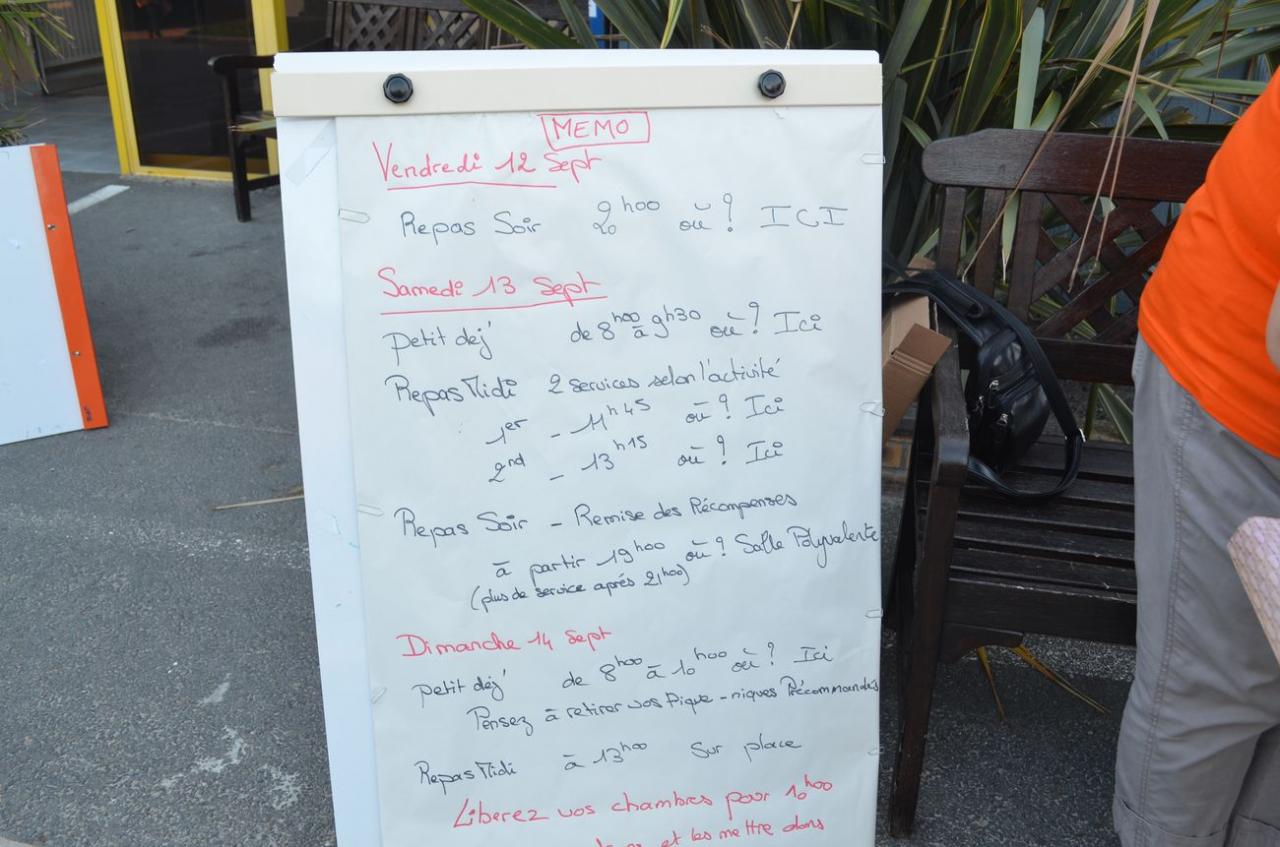 MEMO
Vendredi 12 Sept
Repas Soir 20h00 où? ICI
Samedi 13 Sept
petit déj' de 8h00 à 9h30 où? Ici
Repas Midi 2 services selon l'activité
1er - 11h45 où? Ici
2nd - 13h15 où? Ici
Repas Soir - Remise des Récompenses
à partir 19h00 où? Salle Polyvalente
(plus de service après 21h00)
Dimanche 14 Sept
petit déj' de 8h00 à 10h00 où? Ici
Pensez à retirer vos Pique-niques Précommandés
Repas Midi à 13h00 Sur place
Liberez vos chambres pour 10h00
et les mettre dans